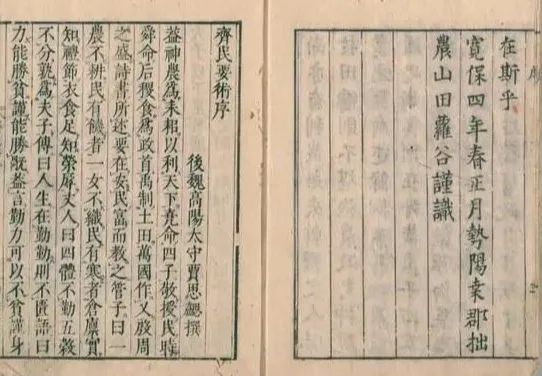 在斯乎
寬保四年春正月勢陽桒郡拙
農山田蘿谷謹識
齊民要術序
後魏高陽太守賈思勰撰
葢神農爲耒耜以利天下堯命四子敬授民時
舜命后稷食爲政首禹制土田萬國作乂殷周
之盛詩書所述要在安民富而教之管子曰一
農不耕民有饑者一女不織民有寒者倉廩實
知禮節衣食足知榮辱丈人曰四體不勤五穀
不分孰爲夫子傳曰人生在勤勤則不匱語曰
力能勝貧謹能勝禍葢言勤力可以不貧謹身